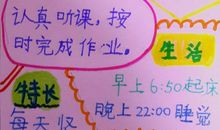 认真听课，按
时完成作业。
生活
早上6:50起床
晚上22:00睡觉
特长
每天